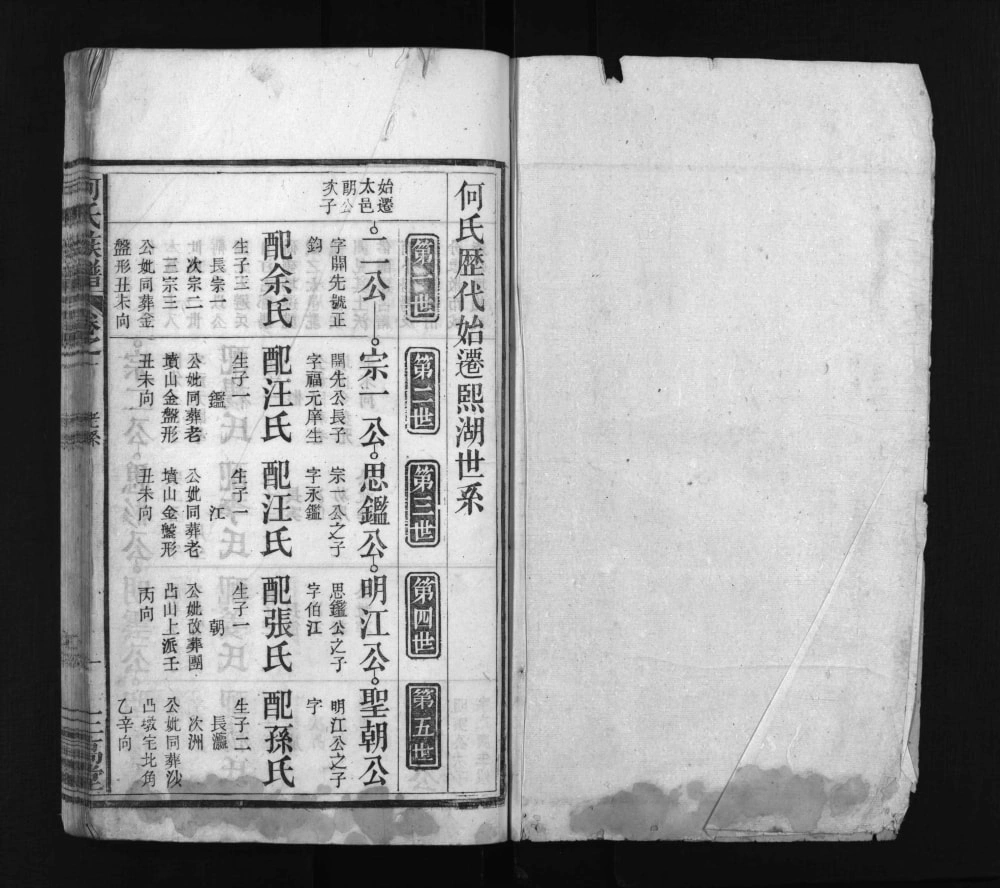 何氏歷代始遷熙湖世系
第一世
第二世
第三世
第四世
第五世
始遷
太邑
朗公
次子
二公
宗一公
思鑑公
明江公
聖朝公
字開先號正
鈞
配余氏
生子三
長宗一
次宗二
三宗三
公妣同葬金
盤形丑未向
開先公長子
字福元庠生
配汪氏
生子一
鑑
公妣同葬老
墳山金盤形
丑未向
宗一公之子
字永鑑
配汪氏
生子一
江
公妣同葬老
墳山金盤形
丑未向
思鑑公之子
字伯江
配張氏
生子一
朝
公妣改葬團
凸山上派壬
丙向
明江公之子
字
配孫氏
生子二
長瀛
次洲
公妣同葬沙
凸墩宅北角
乙辛向
何氏族譜
卷之一
老系
一